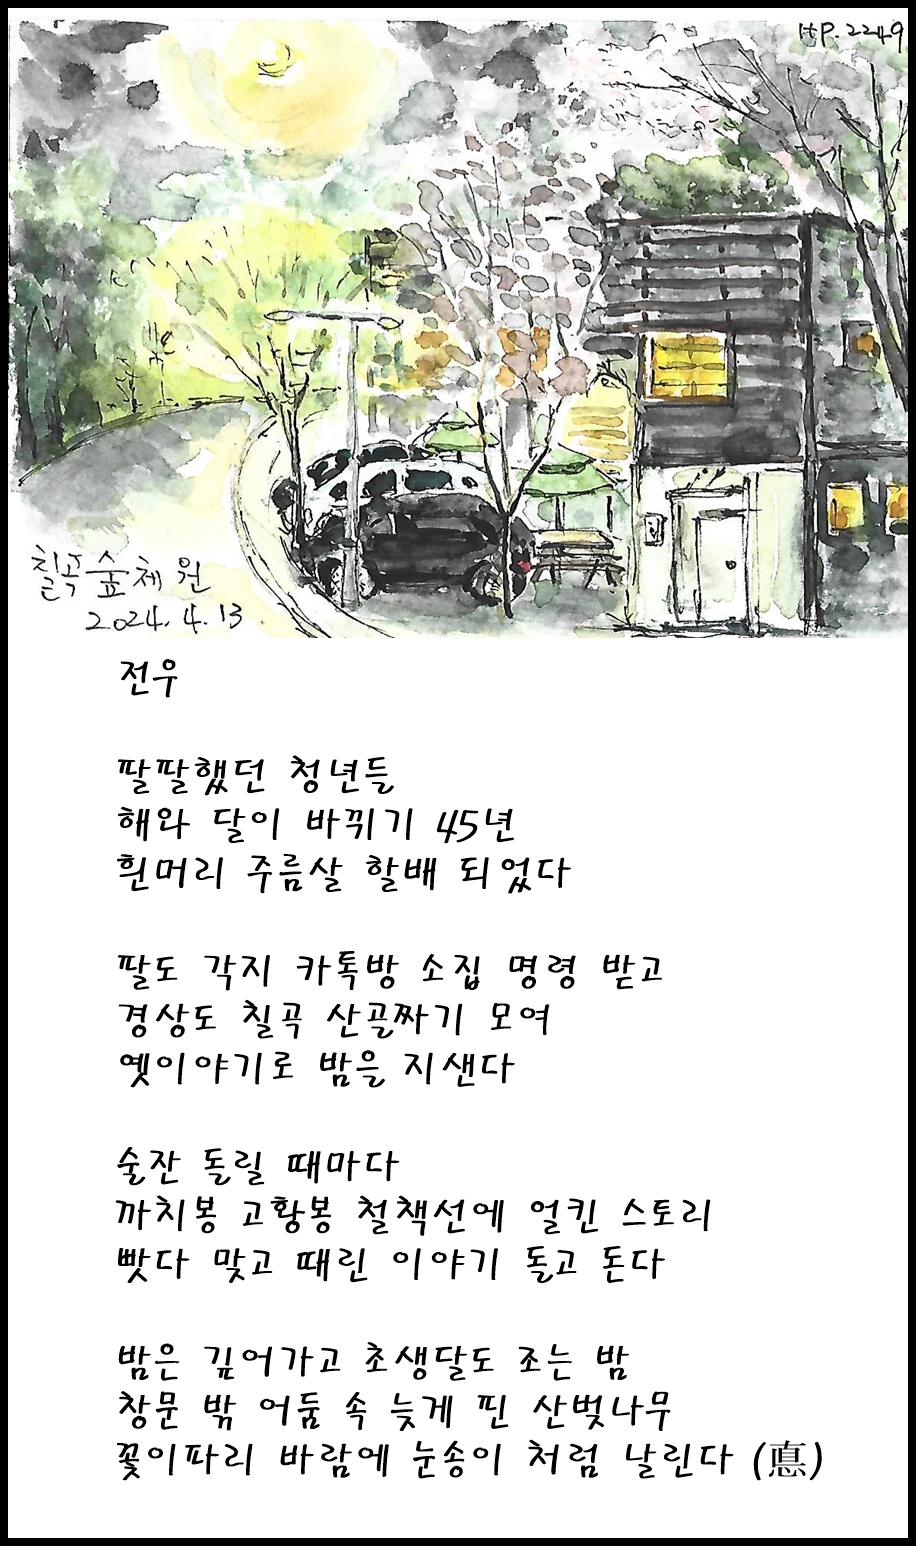 HP. 2249
칠곡숲체원
2024. 4. 13
전우
팔팔했던 청년들
해와 달이 바뀌기 45년
흰머리 주름살 할배 되었다
팔도 각지 카톡방 소집 명령 받고
경상도 칠곡 산골짜기 모여
옛이야기로 밤을 지샌다
술잔 돌릴 때마다
까치봉 고황봉 철책선에 얼킨 스토리
빳다 맞고 때린 이야기 돌고 돈다
밤은 깊어가고 초생달도 조는 밤
창문 밖 어둠 속 늦게 핀 산벚나무
꽃이파리 바람에 눈송이 처럼 날린다 (悳)